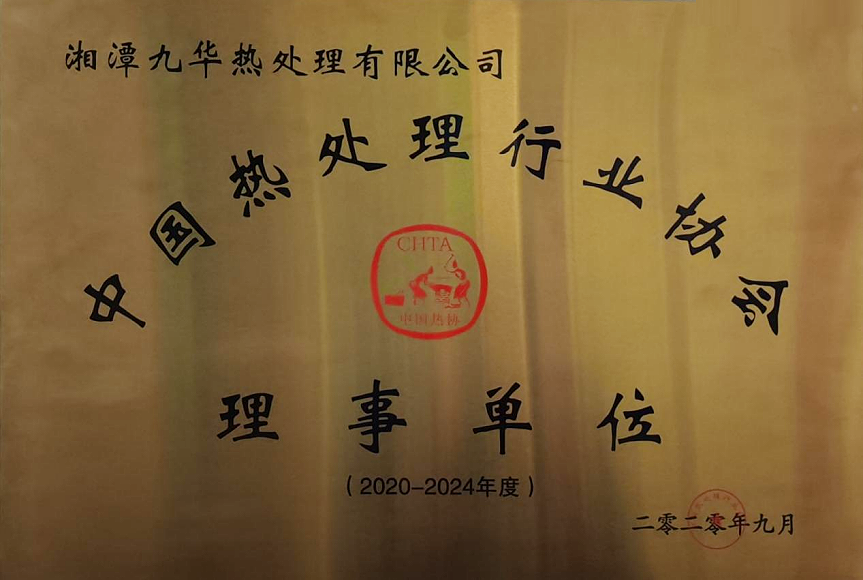 湘潭九华热处理有限公司
中国热处理行业协会
CHTA
中国热协
理事单位
（2020-2024年度）
二零二零年九月